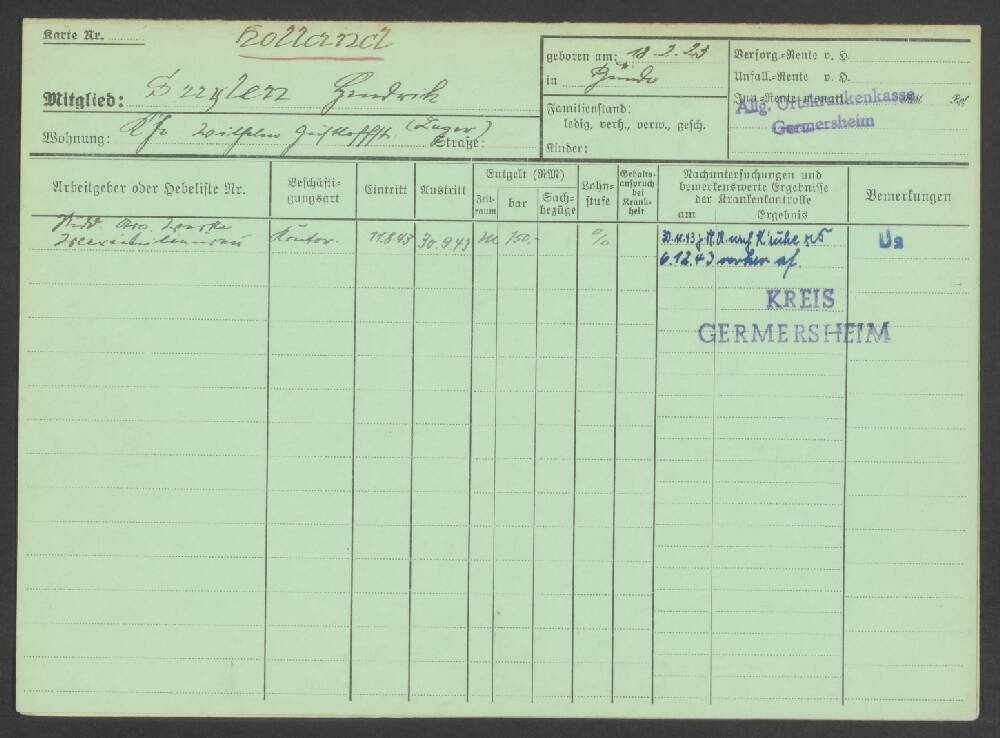 Karte Nr.
Holland
Mitglied: Hendrik
Wohnung: Wilhelm (Lager) Straße:
geboren am: 18.2.23
in
Familienstand:
ledig, verh., verw., gesch.
Kinder:
Versorg.-Rente v. H.
Unfall.-Rente v. H.
Inv.-Rente monatl. RM Rpf
Allg. Ortskrankenkasse
Germersheim
Arbeitgeber oder Hebeliste Nr.
Beschäftigungsart
Eintritt
Austritt
Entgelt (RM)
Zeitraum
bar
Sachbezüge
Lohnstufe
Gehaltsanspruch bei Krankheit
Nachuntersuchungen und
bemerkenswerte Ergebnisse
der Krankenkontrolle
am Ergebnis
Bemerkungen
Kontor. 11.8.43 30.9.43 M 150,- %
30.11.43
6.12.43
KREIS
GERMERSHEIM